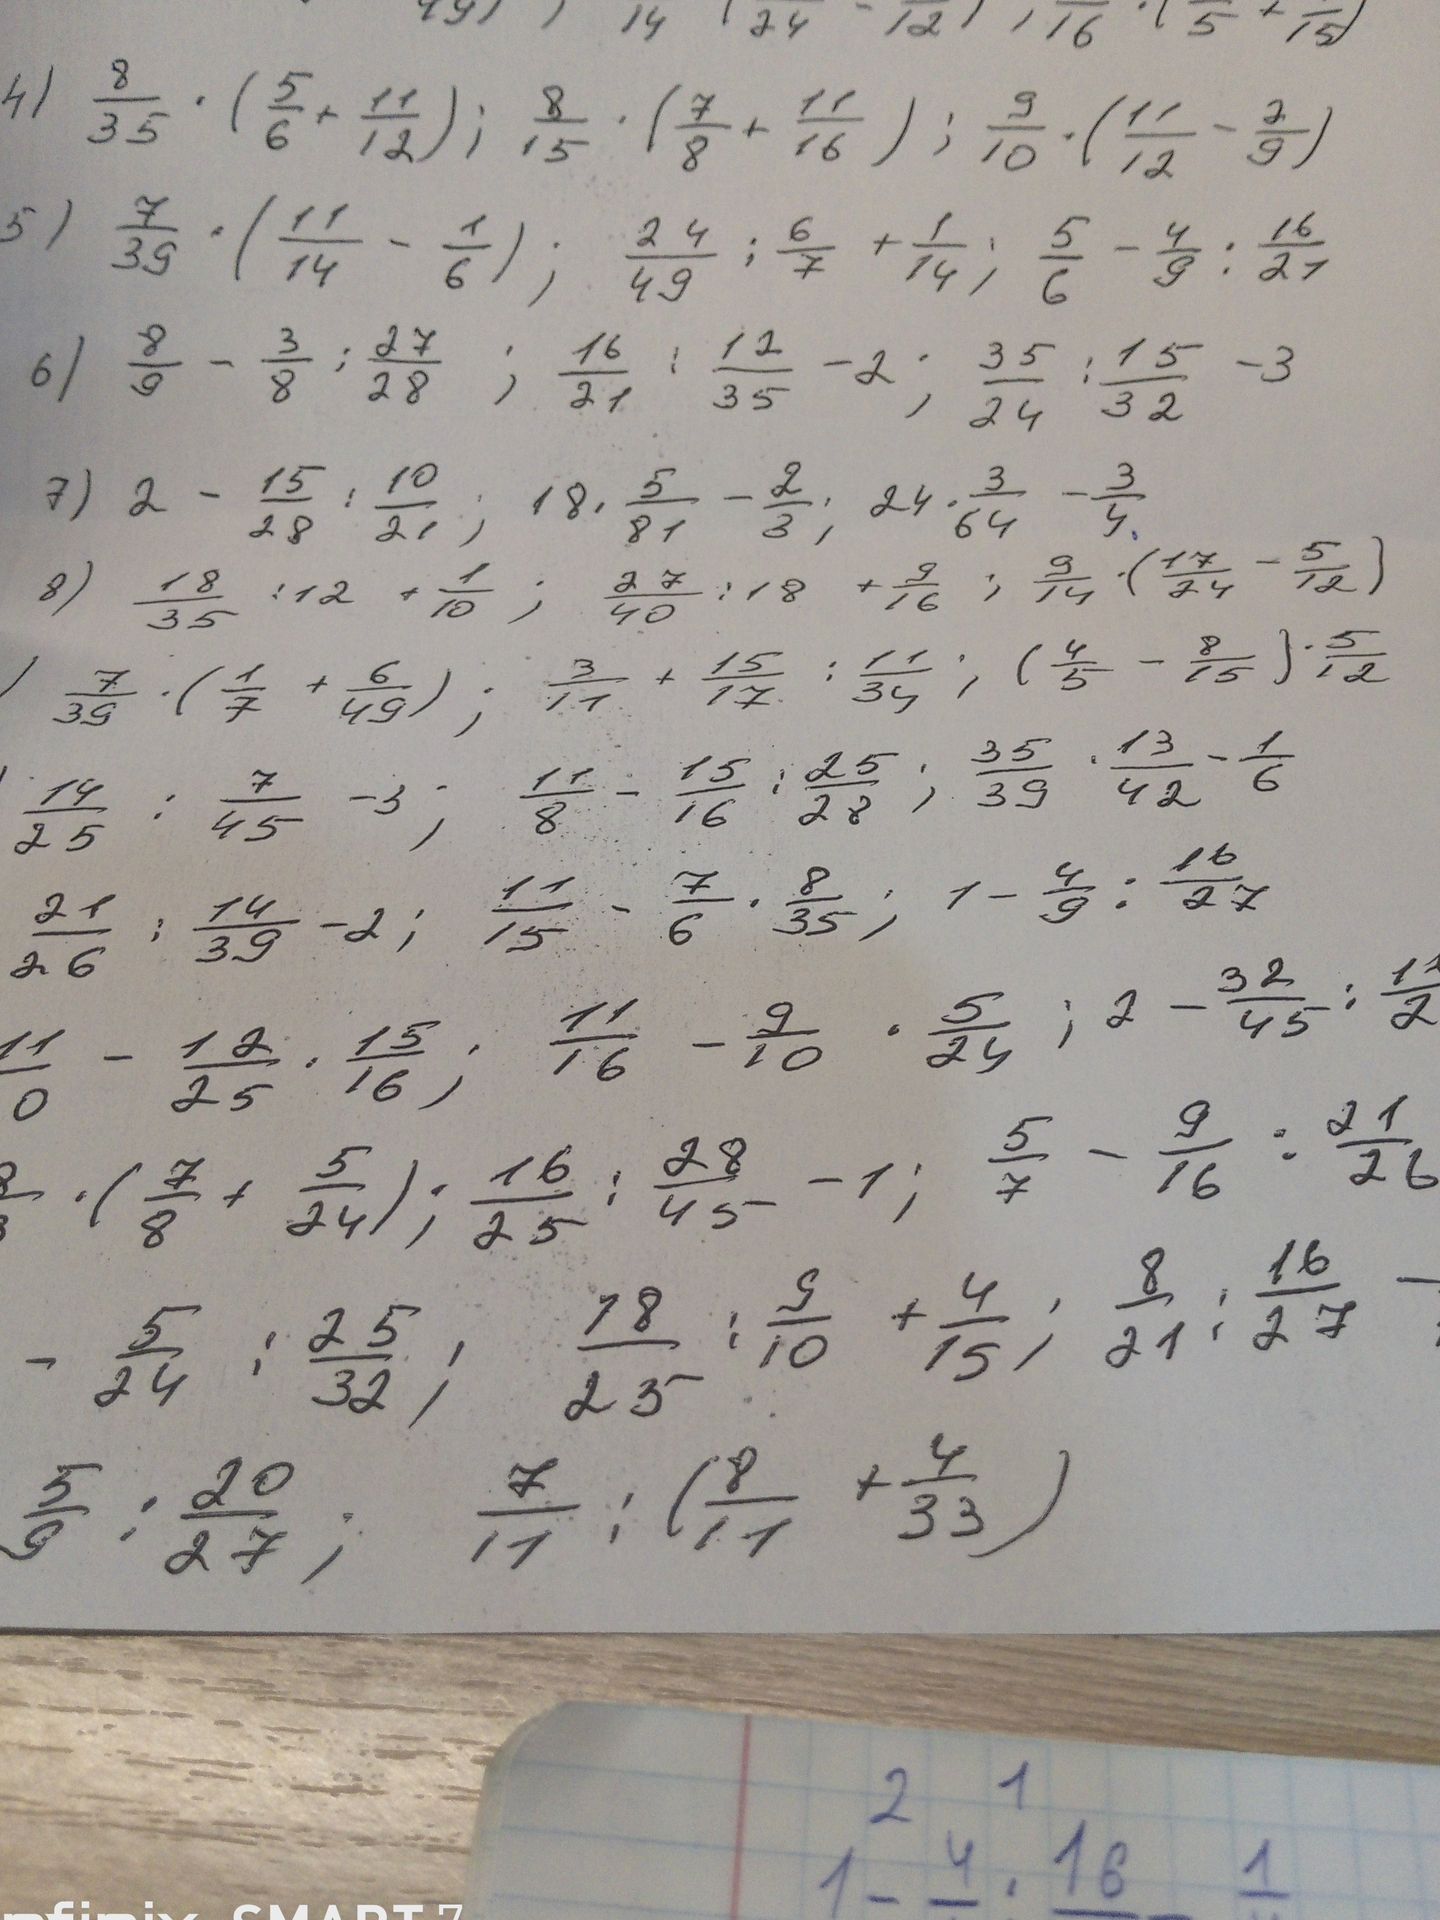 49) ; 14 ( 24 - 12 ) ; 16 · ( 5 + 15 )
4) 8/35 · (5/6 + 11/12); 8/15 · (7/8 + 11/16); 9/10 · (11/12 - 2/9)
5) 7/39 · (11/14 - 1/6); 24/49 : 6/7 + 1/14; 5/6 - 4/9 : 16/21
6) 8/9 - 3/8 : 27/28; 16/21 : 12/35 - 2; 35/24 : 15/32 - 3
7) 2 - 15/28 : 10/21; 18 · 5/81 - 2/3; 24 · 3/64 - 3/4.
8) 18/35 : 12 + 1/10; 27/40 : 18 + 9/16; 9/14 · (17/24 - 5/12)
) 7/39 · (1/7 + 6/49); 3/11 + 15/17 : 11/34; (4/5 - 8/15) · 5/12
14/25 : 7/45 - 3; 11/8 - 15/16 : 25/28; 35/39 · 13/42 - 1/6
21/26 : 14/39 - 2; 11/15 - 7/6 · 8/35; 1 - 4/9 : 16/27
11/0 - 12/25 · 15/16; 11/16 - 9/10 · 5/24; 2 - 32/45 :
· (7/8 + 5/24); 16/25 : 28/45 - 1; 5/7 - 9/16 : 21/26
- 5/24 : 25/32; 18/25 : 9/10 + 4/15; 8/21 : 16/27 -
5/9 : 20/27; 7/11 : (8/11 + 4/33)
2 1
1 - 4 : 16 1
SMART 7